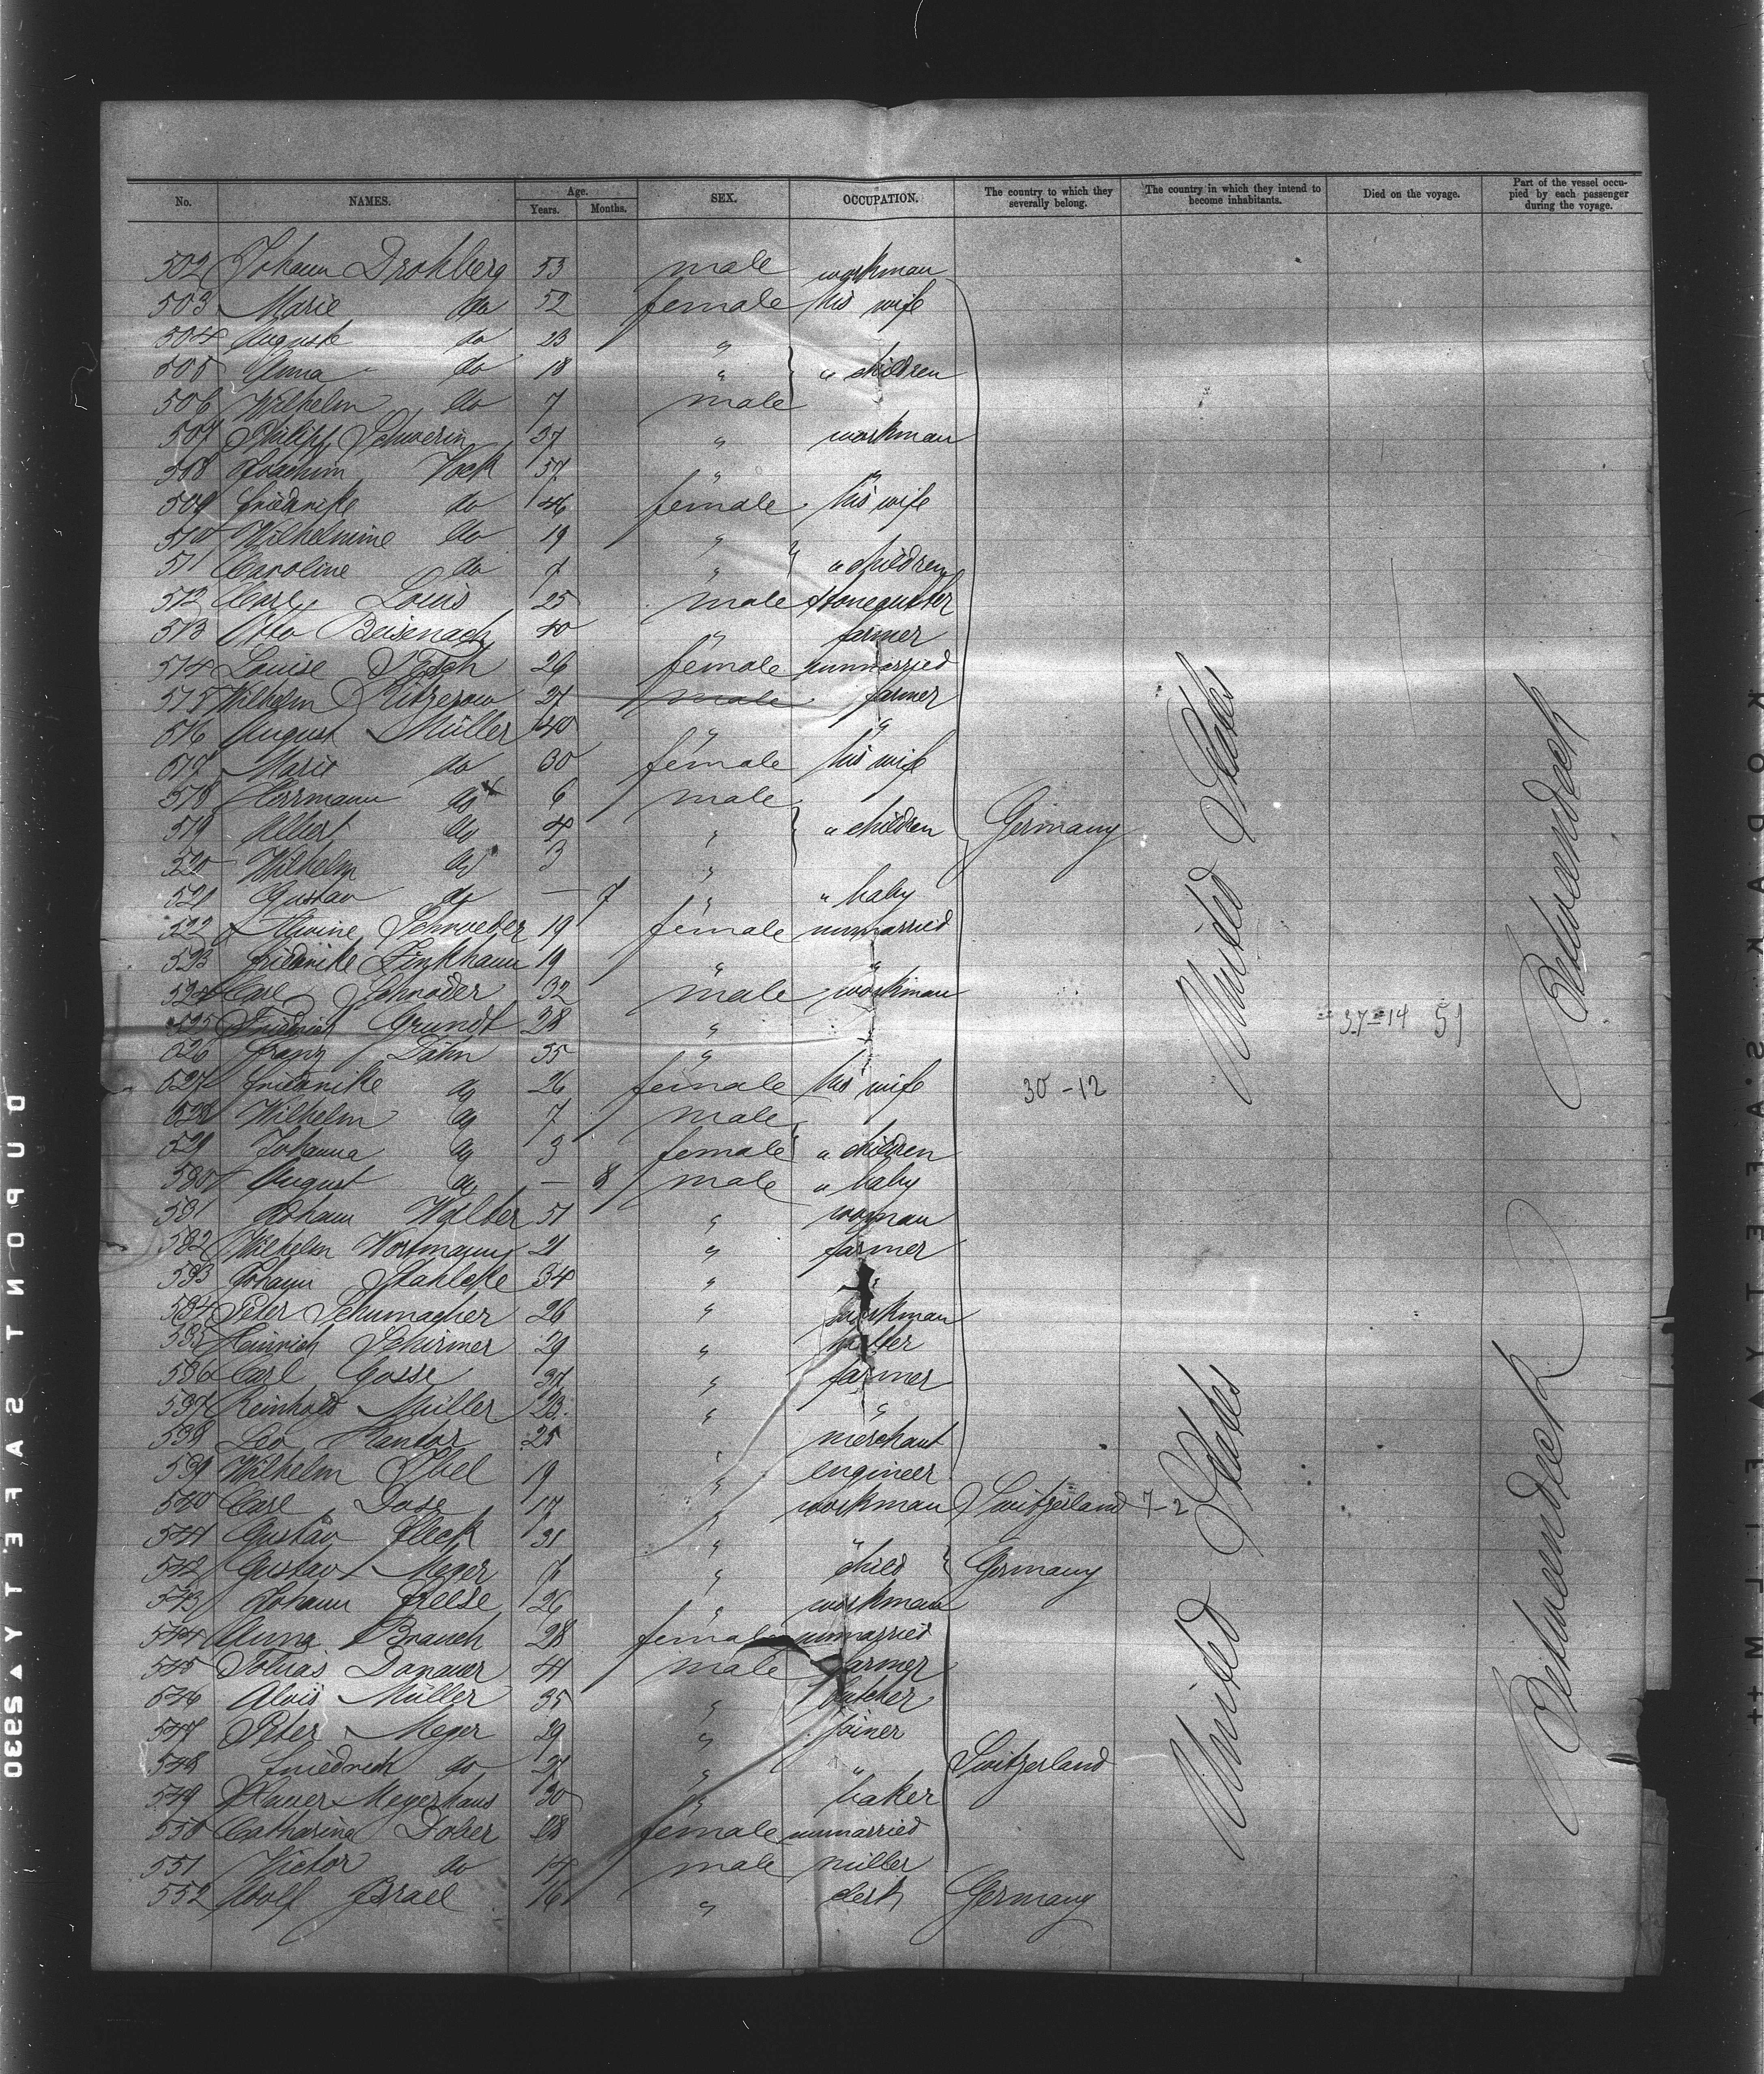 No. NAMES. Age. Years. Months. SEX. OCCUPATION. The country to which they severally belong. The country in which they intend to become inhabitants. Died on the voyage. Part of the vessel occupied by each passenger during the voyage.
502 Johann Drohlberg 53 male workman
503 Marie do 52 female his wife
504 Auguste do 23 "
505 Anna do 18 " " children
506 Wilhelm do 7 male
507 Philipp Schwerin 37 " workman
508 Joachim Vock 57 " "
509 Friedrike do 46 female his wife
510 Wilhelmine do 19 "
511 Caroline do 7 " " children
512 Carl Louis 25 male stonecutter
513 Otto Beisenach 40 " farmer
514 Louise 26 female unmarried
515 Wilhelm Ritzerow 27 male farmer
516 August Müller 40 " "
517 Marie do 30 female his wife
518 Herrmann do 6 male
519 Albert do 4 " " children Germany United States Betweendeck
520 Wilhelm do 3 "
521 Gustav do — 7 " " baby
522 Alwine Schroeder 19 female unmarried
523 Friedrike Finkhaun 19 " "
524 Carl Schröder 32 male workman
525 Friedrich Grundt 28 " " 37-14 51
526 Franz Dähn 35 " "
527 Friedrike do 26 female his wife 30-12
528 Wilhelm do 7 male
529 Johanna do 3 female " children
530 August do — 8 male " baby
531 Johann Walter 51 " worman
532 Wilhelm Wortmann 21 " farmer
533 Johann Stahlcke 34 " "
534 Peter Schumacher 26 " workman
535 Heinrich Schirmer 29 "
536 Carl Gosse 37 " farmer
537 Reinhold Müller 23 " "
538 Leo Kantor 25 " merchant
539 Wilhelm 19 " engineer
540 Carl Dose 17 " workman Switzerland 7-2 United States Betweendeck
541 Gustav Fleck 31 " "
542 Gustav Meyer 7 " child Germany
543 Johann Reese 26 " workman
544 Anna Brauch 28 female unmarried
545 Tobias Danauer 41 male farmer
546 Alois Müller 35 " butcher
547 Peter Meyer 29 " joiner
548 Friedrich do 21 " " Switzerland
549 Meyerhans 30 " baker
550 Catharina Dober 28 female unmarried
551 Victor do 14 male miller
552 Adolf Israel 16 " clerk Germany
DUPONT SAFETY 2930
KODAK SAFETY FILM